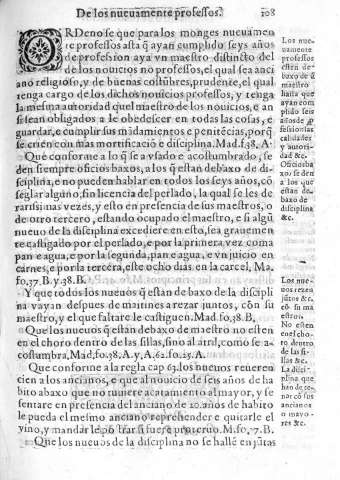 De los nueuamente professos. 108
ORDenose que para los monges nueuamen
te professos asta q̃ ayan cumplido seys años
de profession aya vn maestro distincto del
de los nouicios no professos, el qual sea anci
ano religioso, y de buenas costũbres, prudente, el qual
tenga cargo de los dichos nouicios professos, y tenga
la mesma autoridad quel maestro de los nouicios, e an
si sean obligados a le obedescer en todas las cosas, e
guardar, e cumplir sus mãdamientos e penitẽcias, porq̃
se crien con mas mortificaciõ e disciplina. Mad. f. 38. A.
Que conforme a lo q̃ se a vsado e acostumbrado, se
den siempre oficios baxos, a los q̃ estan debaxo de di-
sciplina, e no pueden hablar en todos los seys años, cõ
seglar alguno, sin licencia del perlado, la qual se les de
rarissimas vezes, y esto en presencia de sus maestros, o
de otro tercero, estando ocupado el maestro, e si algũ
nueuo de la disciplina excediere en esto, sea grauemen
te castigado por el perlado, e por la primera vez coma
pan e agua, e por la segunda, pan e agua, e vn juicio en
carnes, e por la tercera, este ocho dias en la carcel, Ma.
fo. 37. B. y. 38. B.
Y que todos los nueuos q̃ estan debaxo de la discipli
na vayan despues de maitines a rezar juntos, cõn su
maestro, y el que faltare le castiguen. Mad fo. 38. B.
Que los nueuos q̃ estan debaxo de maestro no esten
en el choro dentro de las sillas, sino al atril, como se a-
costumbra, Mad, fo. 38. A. y. A, 62. fo. 25. A.
Que conforme a la regla cap 63. los nueuos reueren
cien a los ancianos, e que al nouicio de seis años de ha
bito abaxo que no tuuiere acatamiento al mayor, y se
sentare en presencia del anciano de 20. años de habito
le pueda el mesmo anciano reprehender e quitarle el
vino, y mandarle postrar si fuere proteruo. M. fo. 7. B.
Que los nueuos de la disciplina no se hallẽ en jũtas
Los nue-
uamente
professos
esten de-
baxo de ũ
maestro
hasta que
ayan com
plido seis
años de p̃
fession las
calidades
y autori-
dad &c.
Oficios ba
xos se den
a los que
estan de-
baxo de
disciplina
&c.
Los nue-
uos rezen
jũtos &c.
cõ su ma
estros.
No esten
en el cho-
ro dentro
de las si-
llas &c.
La disci-
plina que
han de te-
nar cõ sos
ancianos
o mayo-
res &c.